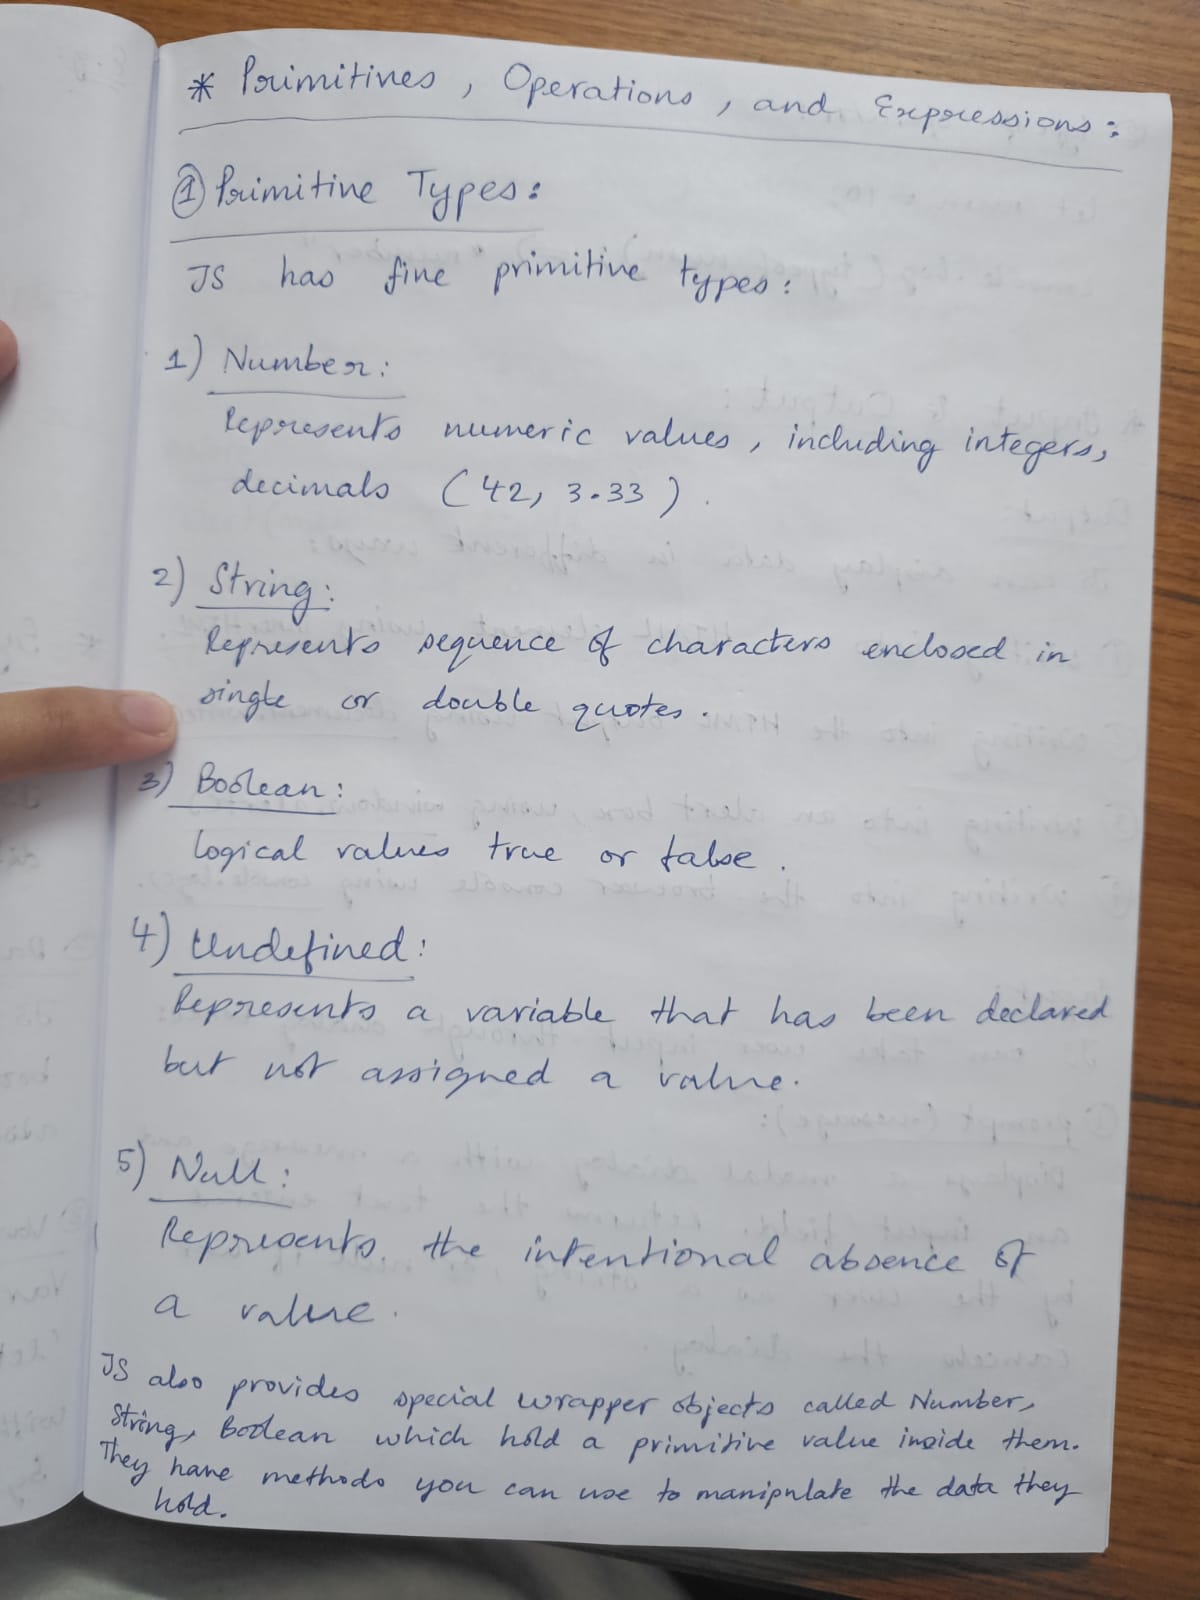 * Primitives, Operations, and Expressions:
① Primitive Types:
JS has five primitive types:
1) Number:
Represents numeric values, including integers,
decimals (42, 3.33).
2) String:
Represents sequence of characters enclosed in
single or double quotes.
3) Boolean:
logical values true or false.
4) Undefined:
Represents a variable that has been declared
but not assigned a value.
5) Null:
Represents the intentional absence of
a value.
JS also provides special wrapper objects called Number,
String, Boolean which hold a primitive value inside them.
They have methods you can use to manipulate the data they
hold.